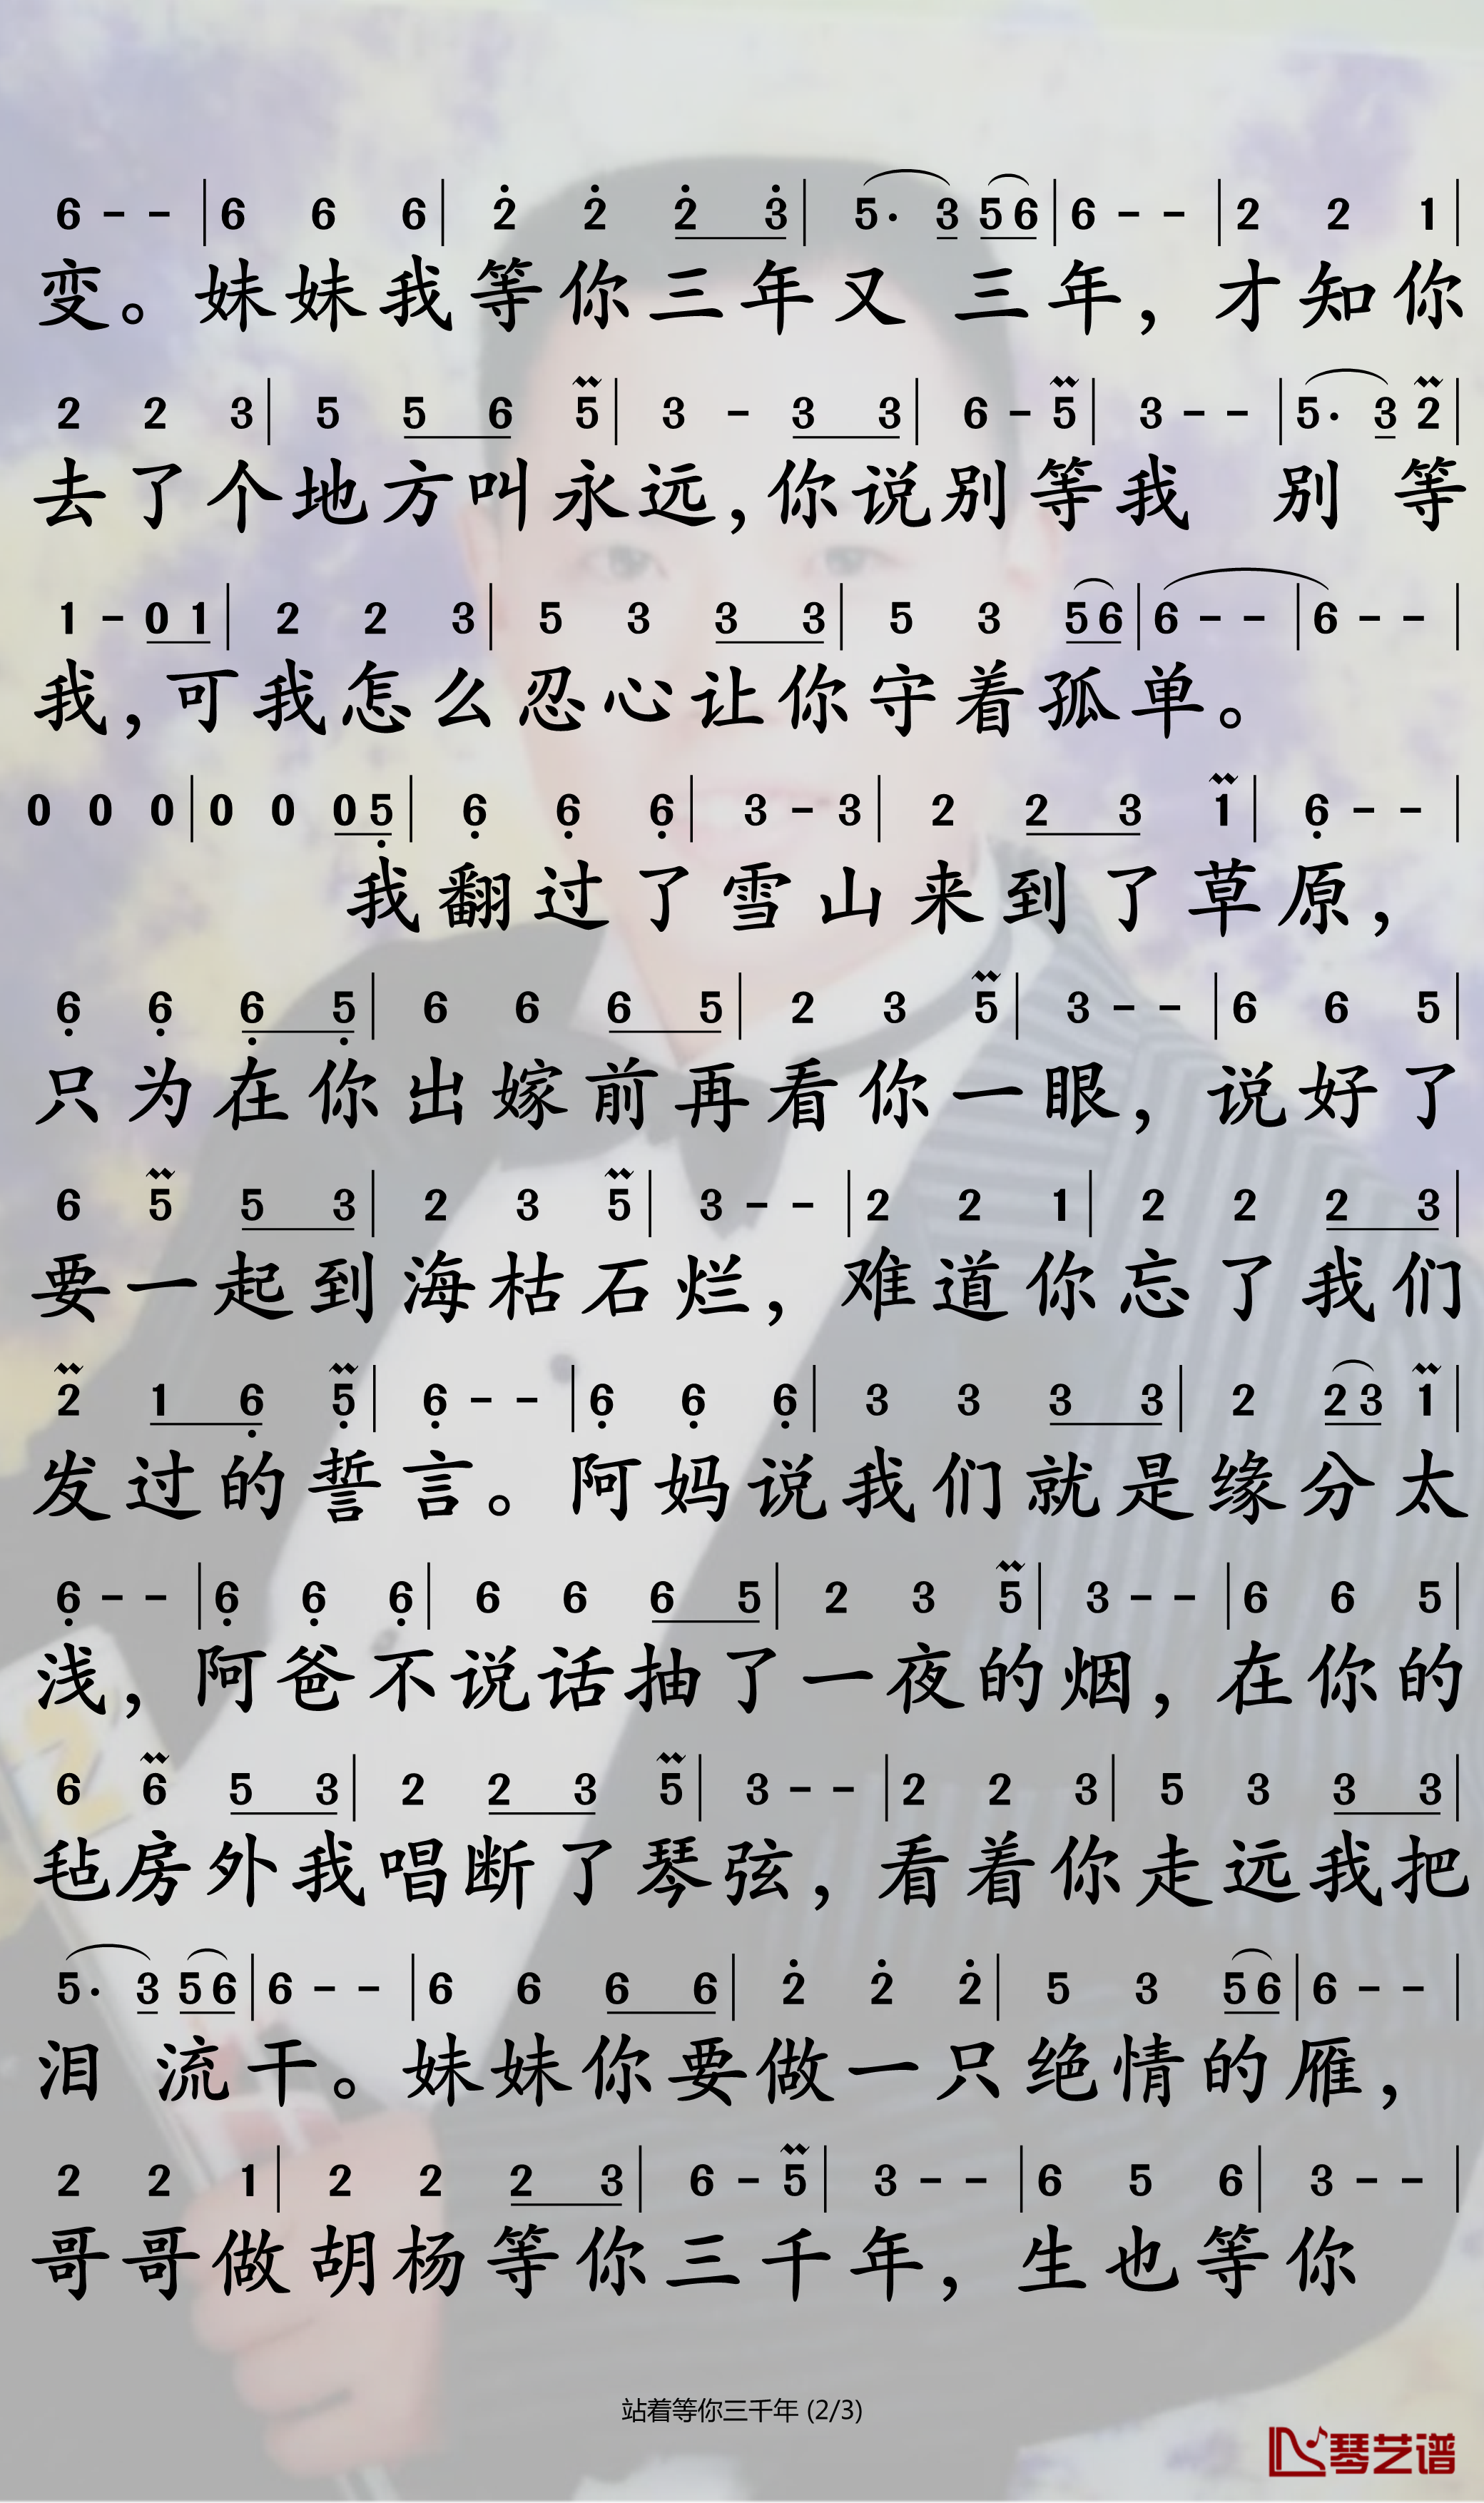 6 - - | 6 6 6 | 2̇ 2̇ 2̇ 3̇ | 5· 3 5 6 | 6 - - | 2 2 1 |
变。妹妹我等你三年又 三年，才知你
2 2 3 | 5 5 6 5 | 3 - 3 3 | 6 - 5 | 3 - - | 5· 3 2 |
去了个地方叫永远，你说别等我 别 等
1 - 0 1 | 2 2 3 | 5 3 3 3 | 5 3 5 6 | 6 - - | 6 - - |
我，可我怎么忍心让你守着孤单。
0 0 0 | 0 0 0 5̣ | 6̣ 6̣ 6̣ | 3 - 3 | 2 2 3 1 | 6̣ - - |
我翻过了雪山来到了草原，
6̣ 6̣ 6̣ 5̣ | 6 6 6 5 | 2 3 5 | 3 - - | 6 6 5 |
只为在你出嫁前再看你一眼，说好了
6 5 5 3 | 2 3 5 | 3 - - | 2 2 1 | 2 2 2 3 |
要一起到海枯石烂，难道你忘了我们
2 1 6̣ 5̣ | 6̣ - - | 6̣ 6̣ 6̣ | 3 3 3 3 | 2 2 3 1 |
发过的誓言。阿妈说我们就是缘分太
6̣ - - | 6̣ 6̣ 6̣ | 6 6 6 5 | 2 3 5 | 3 - - | 6 6 5 |
浅，阿爸不说话抽了一夜的烟，在你的
6 6 5 3 | 2 2 3 5 | 3 - - | 2 2 3 | 5 3 3 3 |
毡房外我唱断了琴弦，看着你走远我把
5· 3 5 6 | 6 - - | 6 6 6 6 | 2̇ 2̇ 2̇ | 5 3 5 6 | 6 - - |
泪 流干。妹妹你要做一只绝情的雁，
2 2 1 | 2 2 2 3 | 6 - 5 | 3 - - | 6 5 6 | 3 - - |
哥哥做胡杨等你三千年，生也等你
站着等你三千年 (2/3)
琴艺谱